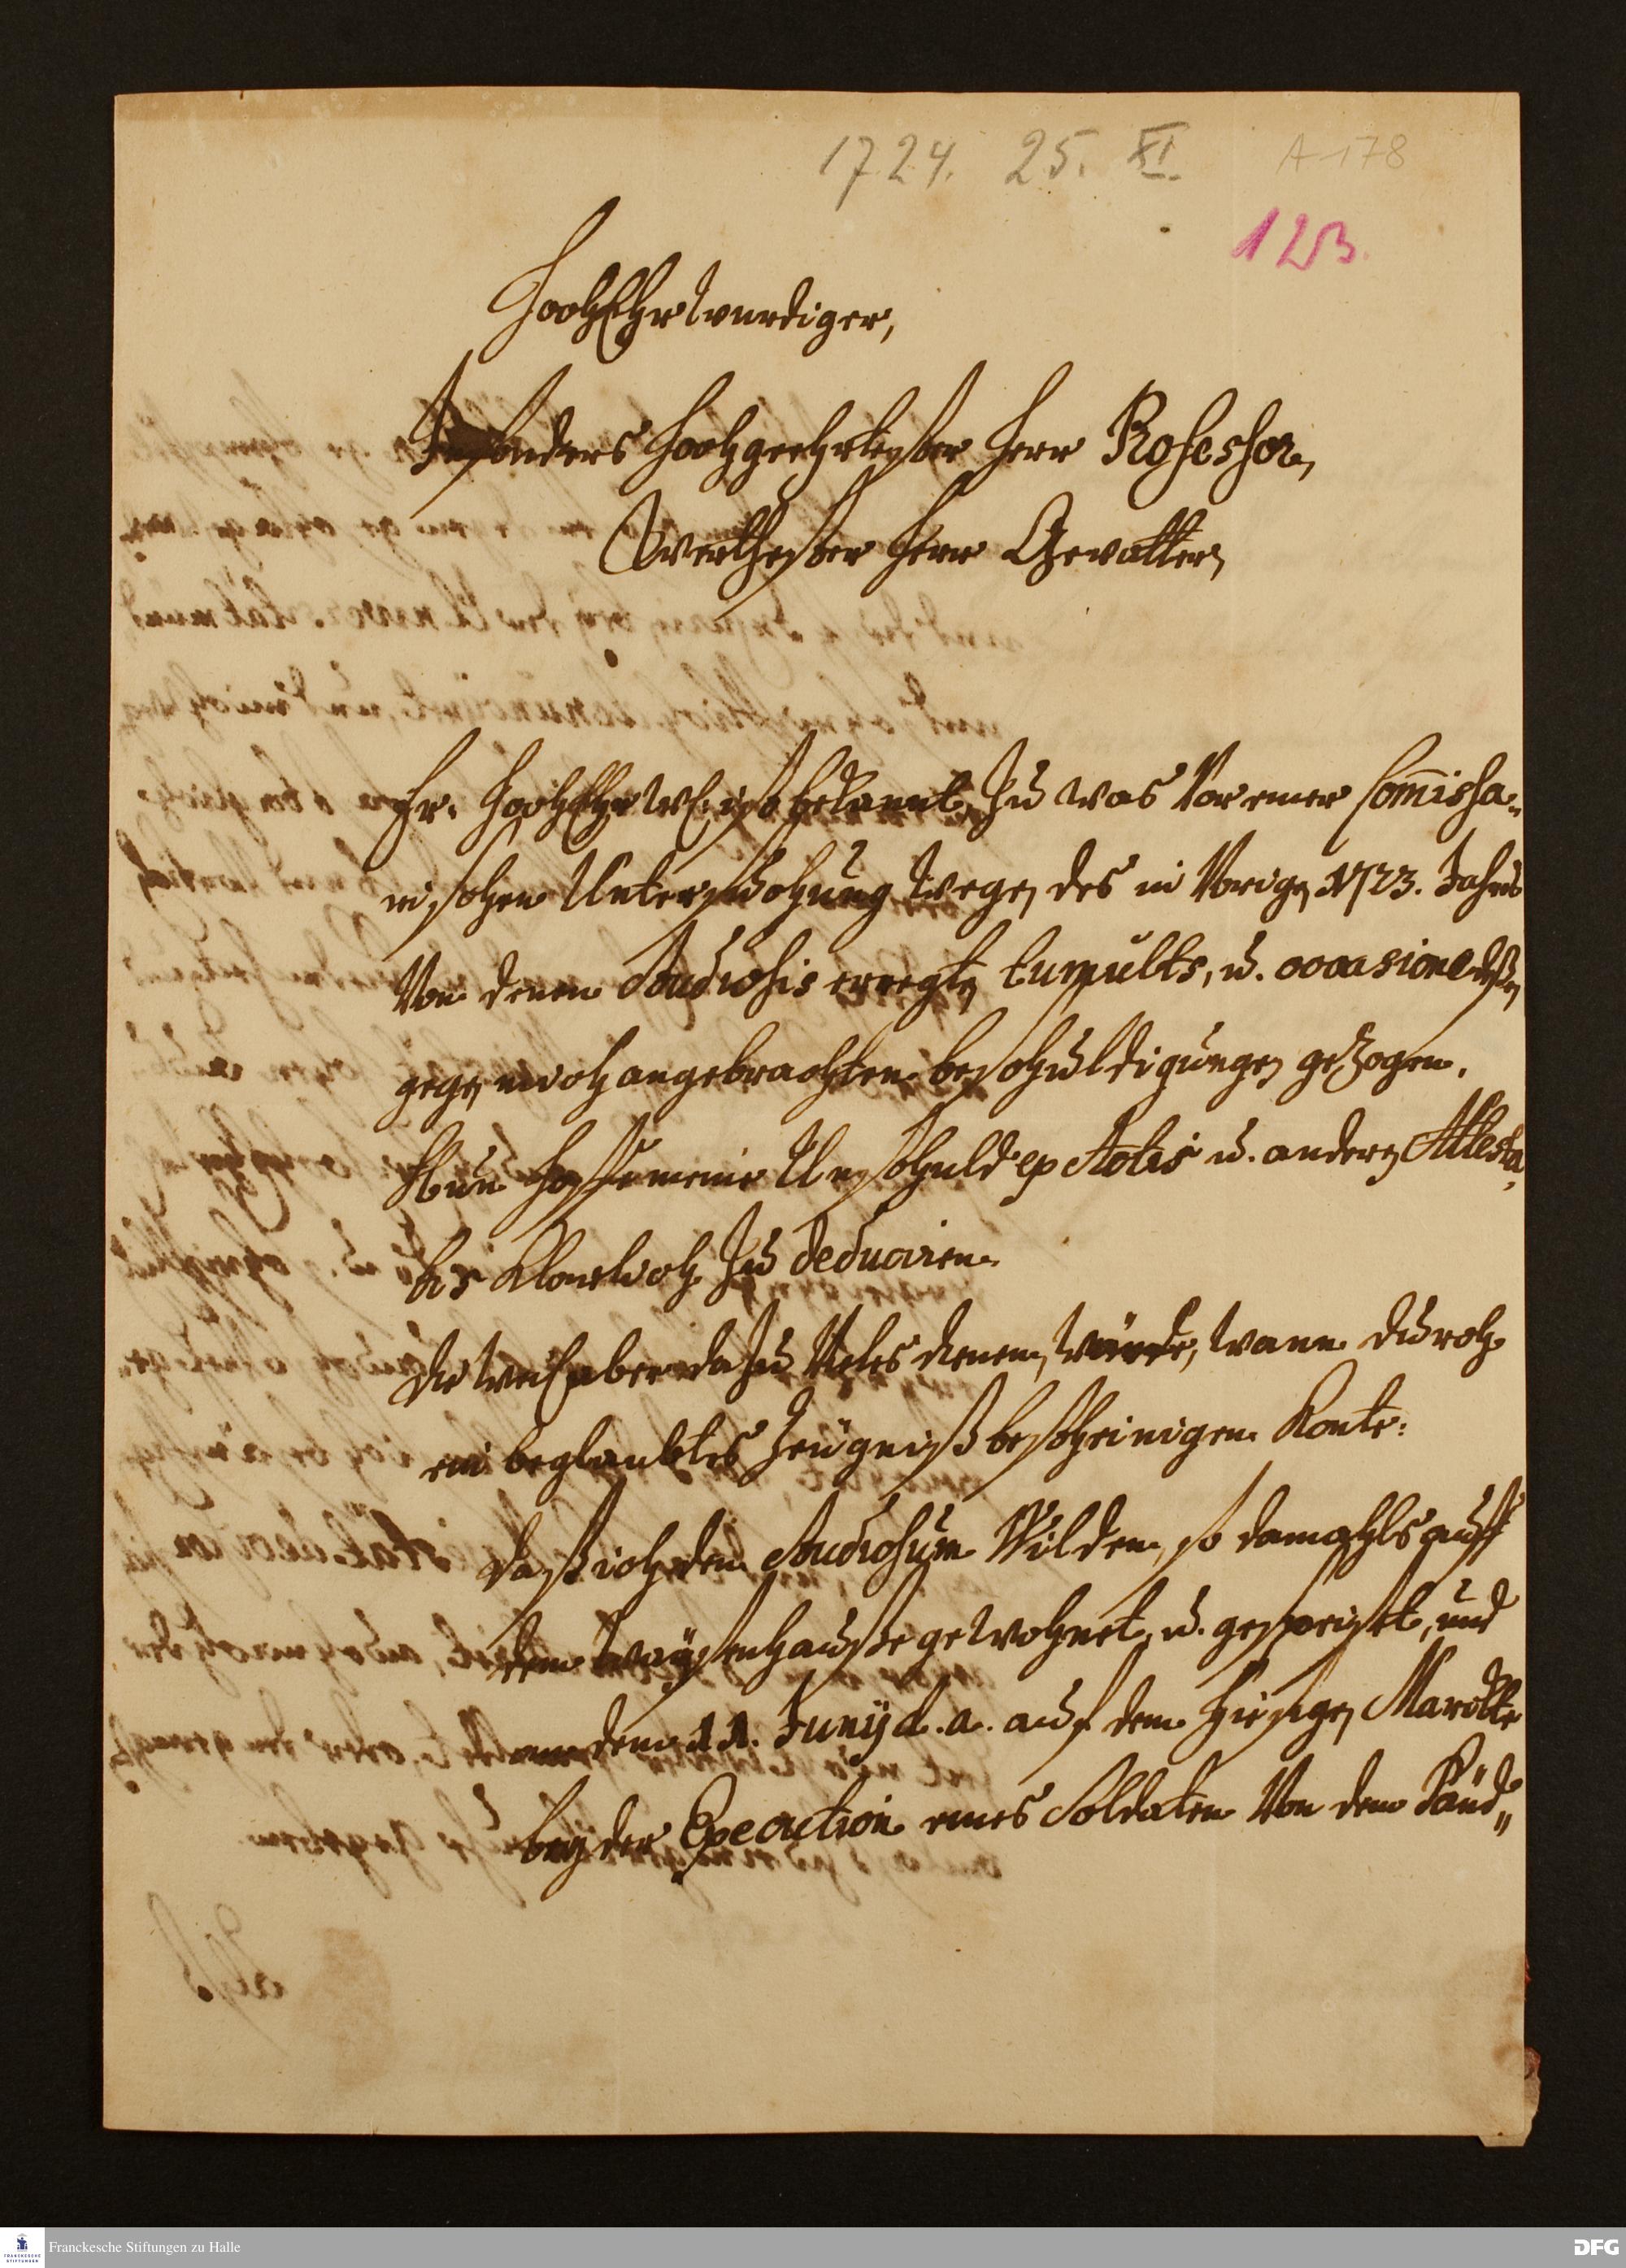 1724. 25. XI.
A 178
123.
HochEhrwurdiger,
Insonders Hochgeehrtester Herr Professor,
Werthester Herr Gevatter,
Er. HochEhrW. ist bekannt, zu was vor einer Commissa-
rischen Untersuchung wegen des in Vorigen 1723. Jahre
Von denen Studiosis erregten tumults, u. occasione deßen
gegen mich angebrachten beschuldigungen gezogen.
Nun hoffe meine Unschuld ex Actis u. andern Attesta-
tis klärlich zu deduciren.
Die weil aber dazu Vieles dienen würde, wann durch
ein beglaubtes Zeügniß bescheinigen konte:
daß ich den Studiosum Wilden, so damahls auff
dem Waysenhauße gewohnet, u. gespeiset, und
den 11. Junij d. a. auf dem hiesigen Marckte
bey der Execution eines Soldaten Von dem Land-
Franckesche Stiftungen zu Halle
DFG